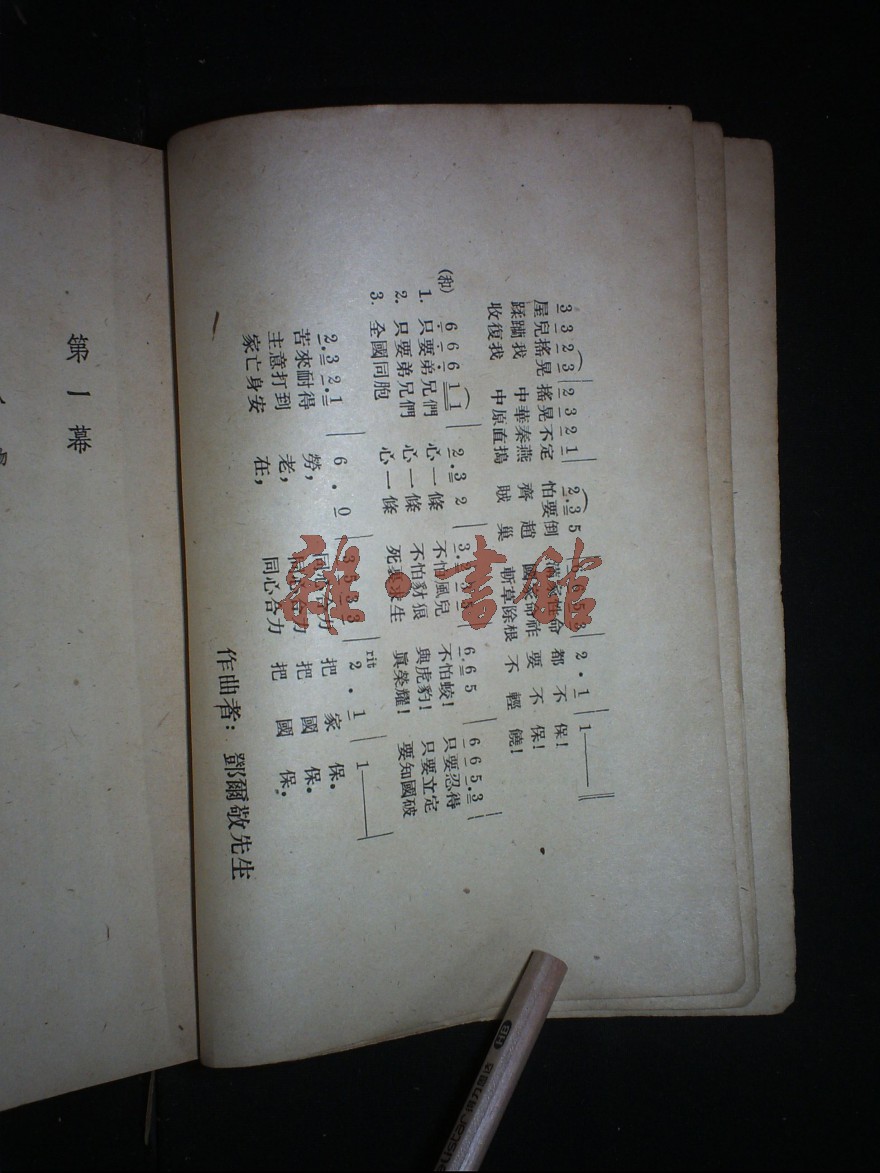 3 3 2 3 | 2 3 2 1 | 2.3 5 | 6 5 3 | 2 . 1 | 1 —— ‖
屋兒搖晃 搖晃不定 怕要倒 性命 都 不 保!
蹂躪我 中華秦燕 齊 趙 國家命祚 要 不 保!
收復我 中原直搗 賊 巢 斬草除根 不 輕 饒!
(和)
6 6 6 1 1 | 2.3 2 | 3. 5 | 6.6 5 | 6 6 5.3 |
1. 只要弟兄們 心一條 不怕風兒 不怕蛟! 只要忍得
2. 只要弟兄們 心一條 不怕豺狼 與虎豹! 只要立定
3. 全國同胞 心一條 死裏求生 眞榮耀! 要知國破
rit
2.3 2.1 | 6 . 0 | 3 5 3 3 | 2 . 1 | 1 —— |
苦來耐得 勞, 同心合力 把 家 保.
主意打到 老, 同心合力 把 國 保.
家亡身安 在, 同心合力 把 國 保.
作曲者: 鄧爾敬先生
第一
雜·書館